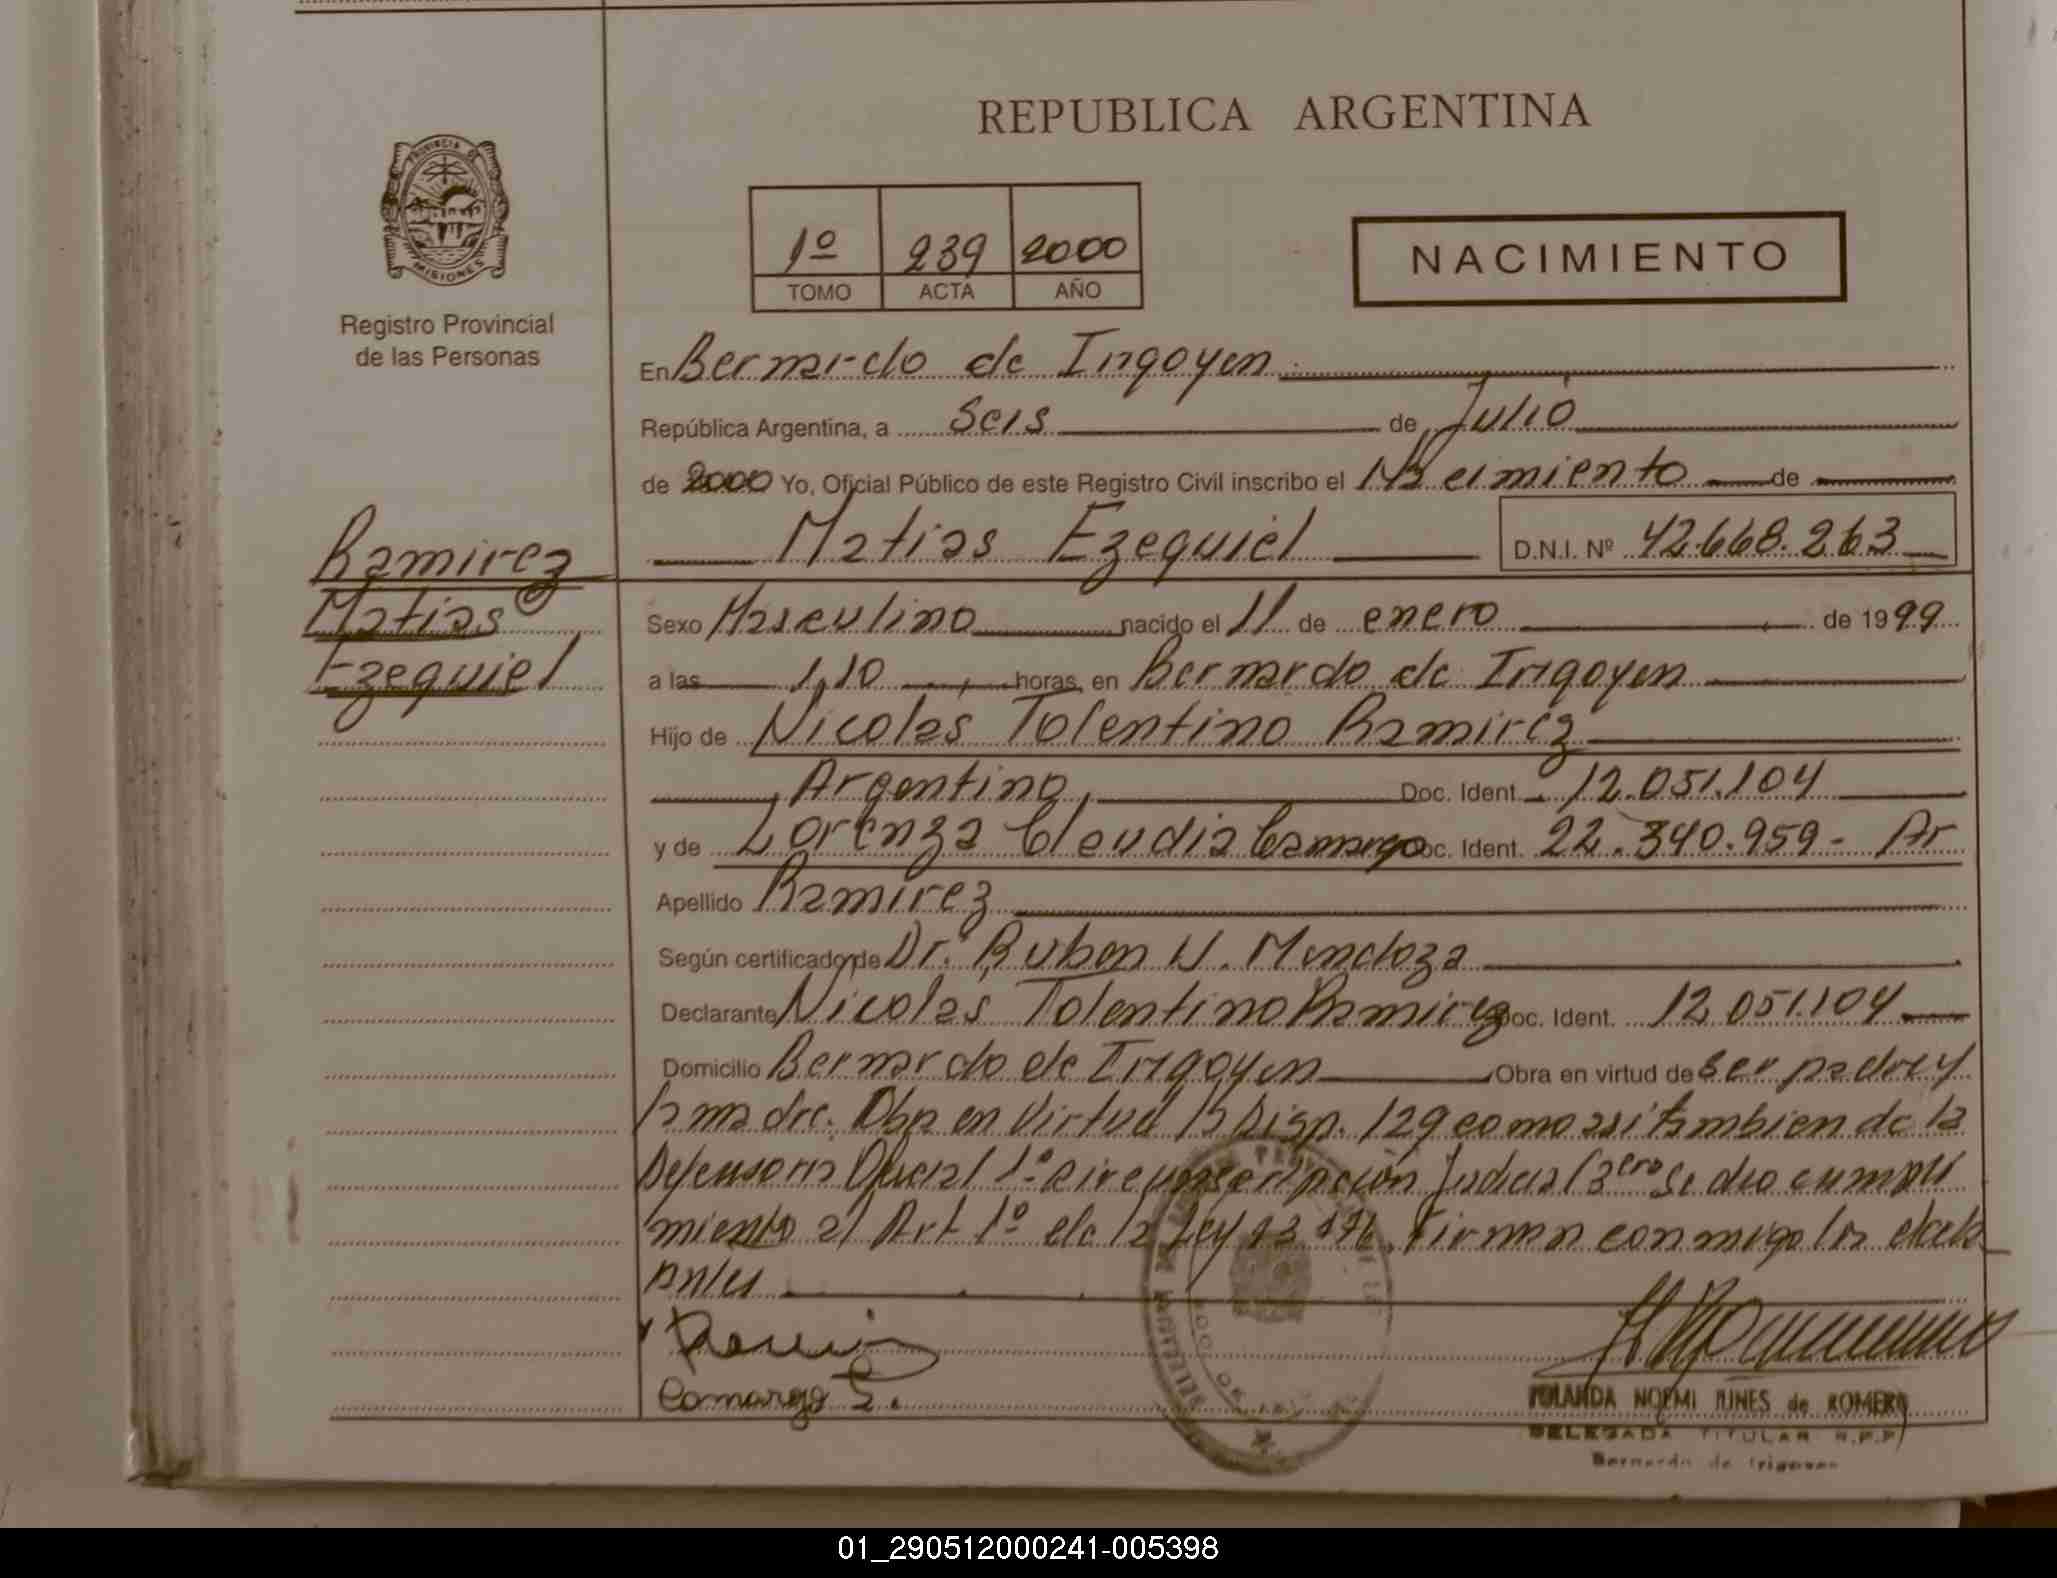 REPUBLICA ARGENTINA
PROVINCIA DE
MISIONES
Registro Provincial
de las Personas
1º 239 2000
TOMO ACTA AÑO
NACIMIENTO
En Bernardo de Irigoyen
República Argentina, a Seis de Julio
de 2000 Yo, Oficial Público de este Registro Civil inscribo el Nacimiento de
Matias Ezequiel D.N.I. Nº 42.668.263
Ramirez
Matias
Ezequiel
Sexo Masculino nacido el 11 de enero de 1999
a las 1,10 horas, en Bernardo de Irigoyen
Hijo de Nicolas Tolentino Ramirez
Argentino, Doc. Ident. 12.051.104
y de Lorenza Claudia Camargo Doc. Ident. 22.340.959- Ar
Apellido Ramirez
Según certificado de Dr. Ruben W. Mendoza
Declarante Nicolas Tolentino Ramirez Doc. Ident. 12.051.104
Domicilio Bernardo de Irigoyen Obra en virtud de ser padre y
la madre. Obra en Virtud la Disp. 129 como asi tambien de la
Defensoria Oficial 1º circunscripcion Judicial 3ero se dio cumpli
miento al Art 1º de la Ley Firman conmigo los decla
antes
Camargo L.
YOLANDA NOEMI NUNES de ROMERO
DELEGADA TITULAR R.P.P
Bernardo de Irigoyen
01_290512000241-005398